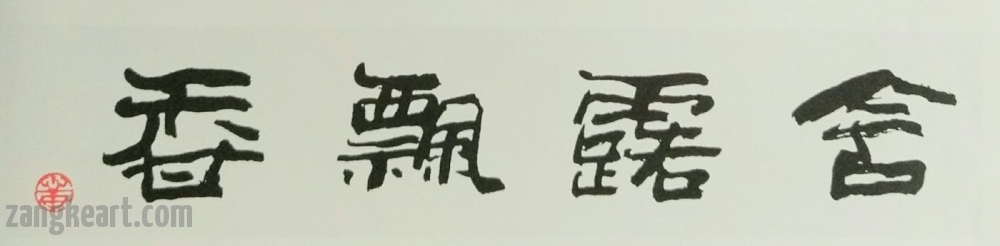 含露飄香
zangkeart.com